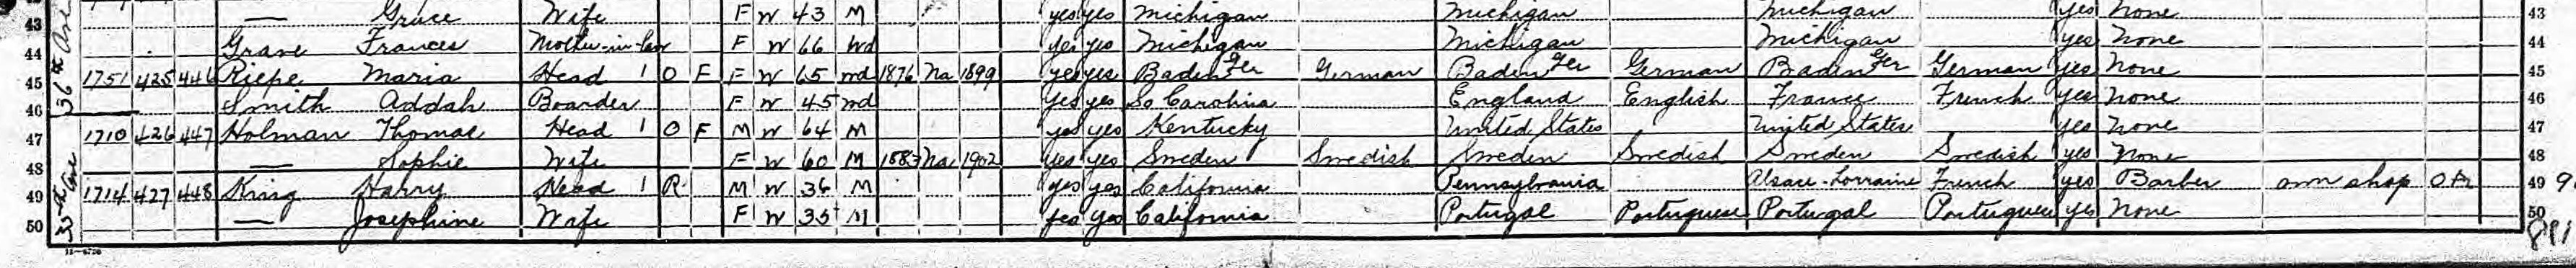 43 — Grace Wife F W 43 M yes yes Michigan Michigan Michigan yes None 43
44 Grane Frances Mother-in-law F W 66 Wd yes yes Michigan Michigan Michigan yes None 44
45 1751 425 446 Riepe Maria Head 1 O F F W 65 wd 1876 Na 1899 yes yes Baden Ger German Baden Ger German Baden Ger German yes None 45
46 Smith Addah Boarder F W 45 wd yes yes So Carolina England English France French yes None 46
47 1710 426 447 Holman Thomas Head 1 O F M W 64 M yes yes Kentucky United States United States yes None 47
48 — Sophie Wife F W 60 M 1883 Na 1902 yes yes Sweden Swedish Sweden Swedish Sweden Swedish yes None 48
49 1714 427 448 King Harry Head 1 R M W 36 M yes yes California Pennsylvania Alsace-Lorraine French yes Barber own shop OA 49 9
50 — Josephine Wife F W 35 M yes yes California Portugal Portuguese Portugal Portuguese yes None 50
36th Ave
35th Ave